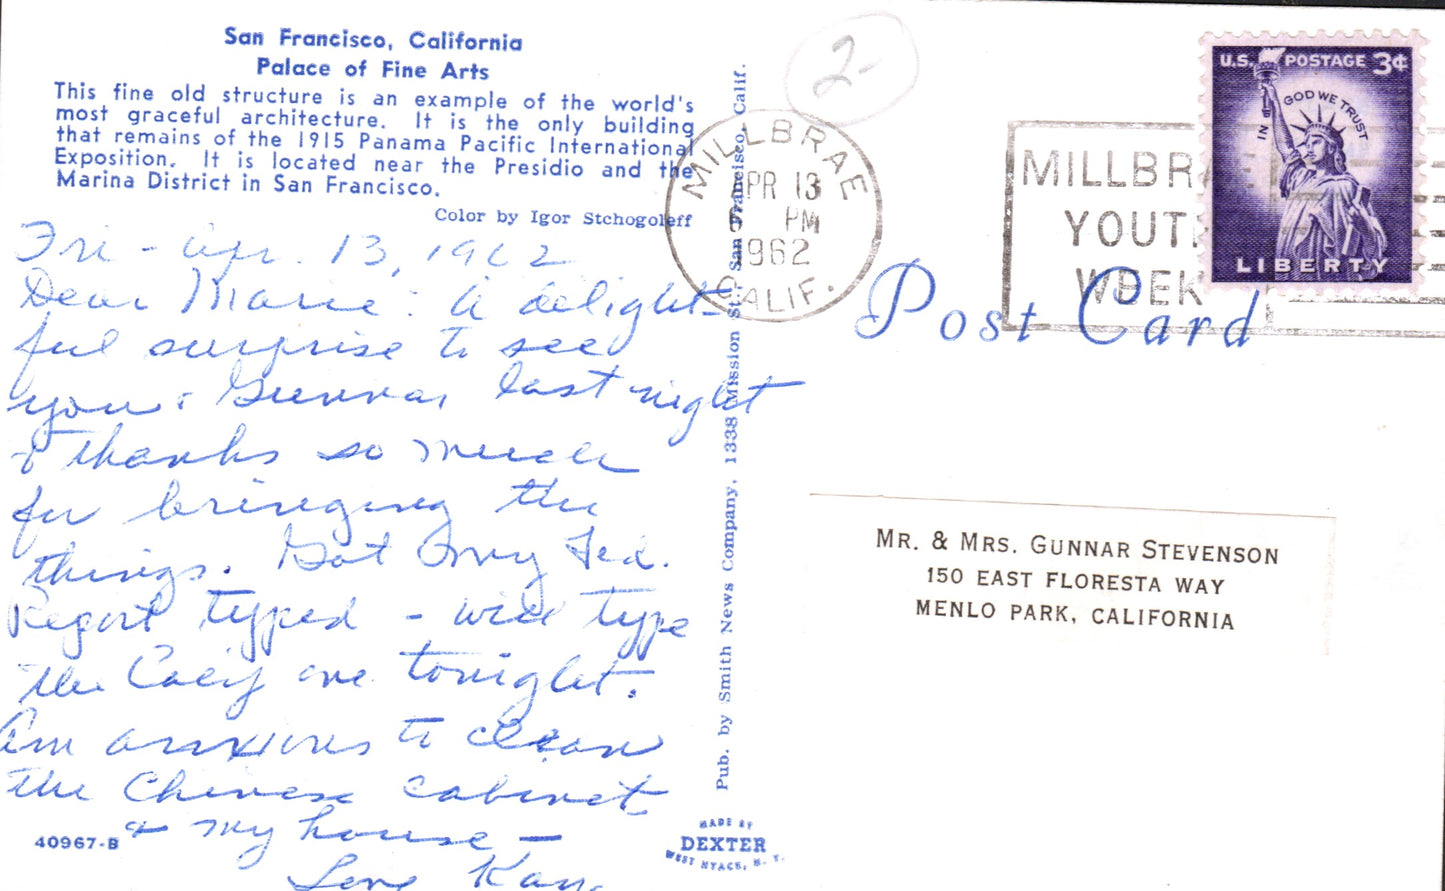 San Francisco, California
Palace of Fine Arts
This fine old structure is an example of the world's
most graceful architecture. It is the only building
that remains of the 1915 Panama Pacific International
Exposition. It is located near the Presidio and the
Marina District in San Francisco.
Color by Igor Stchogoleff
Fri - Apr. 13, 1962
Dear Marie: A delight-
ful surprise to see
you & Gunnar last night
& thanks so much
for bringing the
things. Got my Fed.
Report typed - will type
the Calif one tonight.
Am anxious to clean
the Chinese cabinet
& my house -
Love
40967-B
Pub. by Smith News Company, 1338 Mission St., San Francisco, Calif.
MADE BY
DEXTER
WEST NYACK, N. Y.
2-
MILLBRAE
APR 13
PM
1962
CALIF.
MILLBRAE
YOUTH
WEEK
U.S. POSTAGE 3¢
IN GOD WE TRUST
LIBERTY
Post Card
MR. & MRS. GUNNAR STEVENSON
150 EAST FLORESTA WAY
MENLO PARK, CALIFORNIA